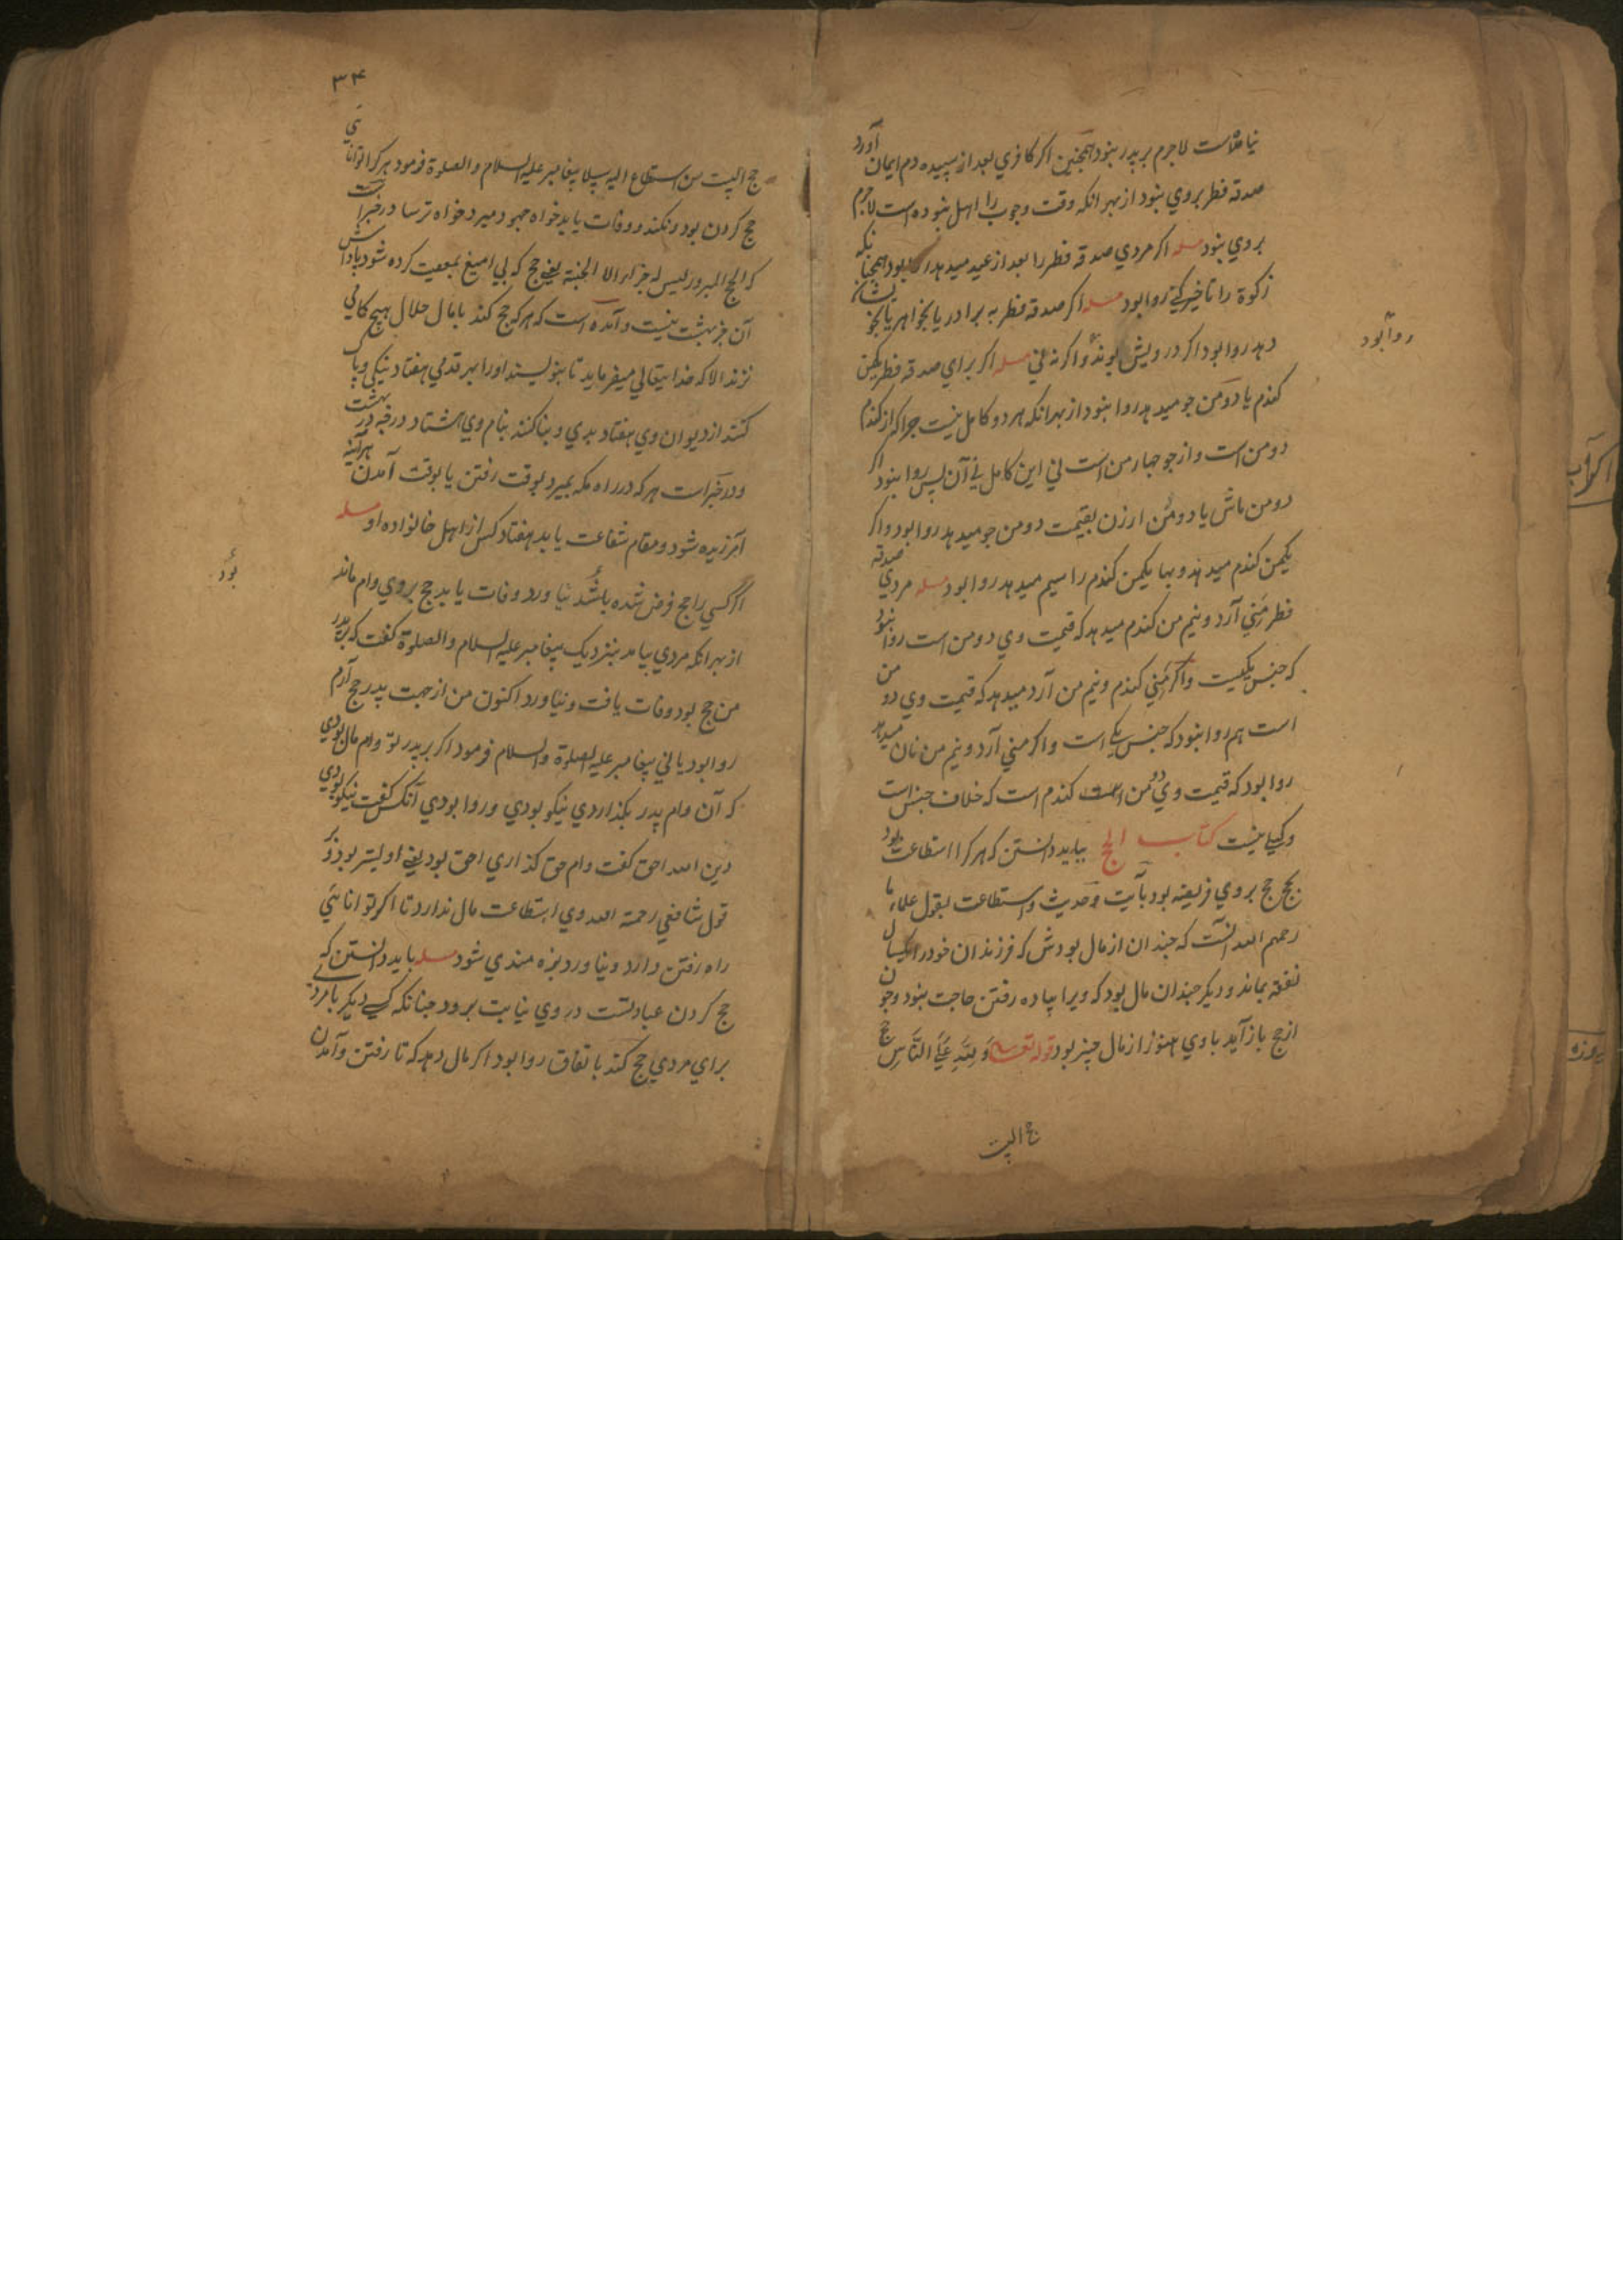 نیامده‌است لاجرم بر پدر نبود همچنین اکر کافری بعد از سپیده دم ایمان آورد
صدقه فطر بروی نبود از بهر انکه وقت وجوب را اهل نبوده است لاجرم
بروی نبود مسله اکر مردی صدقه فطر را بعد از عید میدهد روا بود همچنانکه
زکوة را تاخیر کنی روا بود مسله اکر صدقه فطر به برادر یا بخواهر یا بخویشان
دهد روا بود اکر درویش بوند و اکرنه نی مسله اکر برای صدقه فطر یکمن
کندم یا دو من جو میدهد روا نبود از بهر انکه هر دو کامل نیست جرا که از کندم
دو من است و از جو جهار من است نی این کامل نی آن پس روا نبود اکر
دو من ماش یا دو من ارزن بقیمت دو من جو میدهد روا بود و اکر
یکمن کندم میدهد و بها یکمن کندم را سیم میدهد روا بود مسله مردی صدقه
فطر منی آرد و نیم من کندم میدهد که قیمت وی دو من است روا نبود
که جنس یکیست و اکر منی کندم و نیم من آرد میدهد که قیمت وی دو من
است هم روا نبود که جنس یکی است و اکر منی آرد و نیم من نان میدهد
روا بود که قیمت وی دو من کندم است که خلاف جنس است
و کیلی نیست کتاب الحج بباید دانستن که هر کرا استطاعت بود
بحج حج بروی فریضه بود بآیت و حدیث و استطاعت بقول علماء ما
رحمهم الله آنست که جندان از مال بودش که فرزندان خود را یکسال
نفقه بماند و دیکر جندان مال بود که ویرا پیاده رفتن حاجت نبود و جون
از حج باز آید با وی هنوز از مال چیز بود قوله تعالی وَلِلَّهِ عَلَی النَّاسِ حج
روا بود
حج البیت
۳۴
حج البیت من استطاع الیه سبیلا پیغامبر علیه السلام و الصلوة فرمود هر کرا توانائی
حج کردن بود و نکند و وفات یابد خواه جهود میرد خواه ترسا در خبر است
که الحج المبرور لیس له جزاء الا الجنة یعنی حج که بی امیغ بمعصیت کرده شود پاداش
آن جز بهشت نیست و آمده است که هر که حج کند با مال حلال هیچ کامی
نزند الا که خدایتعالی میفرماید تا بنویسند او را بهر قدمی هفتاد نیکی و پاک
کنند از دیوان وی هفتاد بدی و بنا کنند بنام وی هشتاد درجه در بهشت
و در خبر است هر که در راه مکه بمیرد بوقت رفتن یا بوقت آمدن هرآینه
آمرزیده شود و مقام شفاعت یابد هفتاد کس از اهل خانواده او مسله
اکر کسی را حج فرض شده باشد نیاورد و وفات یابد حج بروی وام ماند
از بهر انکه مردی بیامد بنزدیک پیغامبر علیه السلام و الصلوة کفت که بر پدر
من حج بود وفات یافت و نیاورد اکنون من از جهت پدر حج آرم
روا بود یا نی پیغامبر علیه الصلوة و السلام فرمود اکر بر پدر تو وام مال بودی
که آن وام پدر بکذاردی نیکو بودی و روا بودی آنکس کفت نیکو بودی
دین الله احق کفت وام حق کذاری احق بود یعنی اولیتر بود و بر
قول شافعی رحمة الله وی استطاعت مال ندارد تا اکر توانائی
راه رفتن دارد و نیاورد بزه مندی شود مسله باید دانستن که
حج کردن عبادتست در وی نیابت برود جنانکه کسی دیکر بامر وی
برای مردی حج کند باتفاق روا بود اکر مال دهد که تا رفتن و آمدن
بود